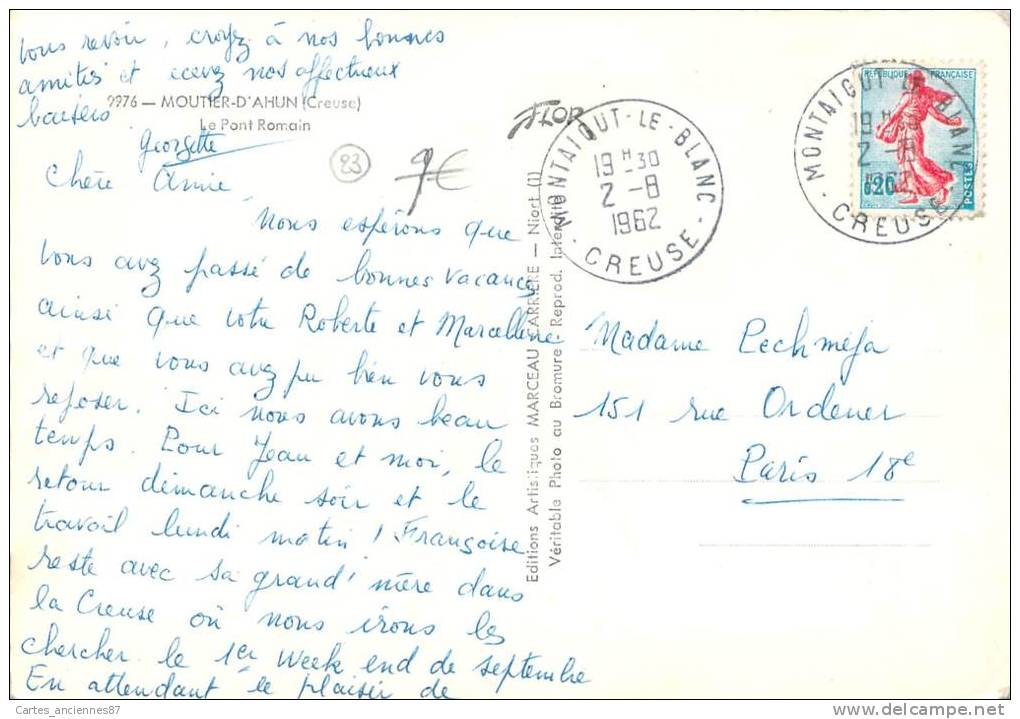 vous revoir, croyez à nos bonnes
amitiés et recevez nos affectueux
baisers.
Georgette
2276 — MOUTIER-D'AHUN (Creuse)
Le Pont Romain
FLOR
23
9€
Chère Amie
Nous espérons que
vous avez passé de bonnes vacances
ainsi que votre Roberte et Marcelline
et que vous avez pu bien vous
reposer. Ici nous avons beau
temps. Pour Jean et moi, le
retour dimanche soir et le
travail lundi matin ! Françoise
reste avec sa grand' mère dans
la Creuse où nous irons les
chercher le 1er week end de septembre
En attendant le plaisir de
Editions Artistiques MARCEAU CARRIERE — Niort (I)
Véritable Photo au Bromure Reprod. Interdite
MONTAIGUT-LE-BLANC
19 H 30
2 -8
1962
CREUSE
MONTAIGUT-LE-BLANC
19 H 30
2 -8
1962
CREUSE
REPUBLIQUE FRANÇAISE
0,20
POSTES
Madame Pechméja
151 rue Ordener
Paris 18e
Cartes_anciennes87
delcampe.net